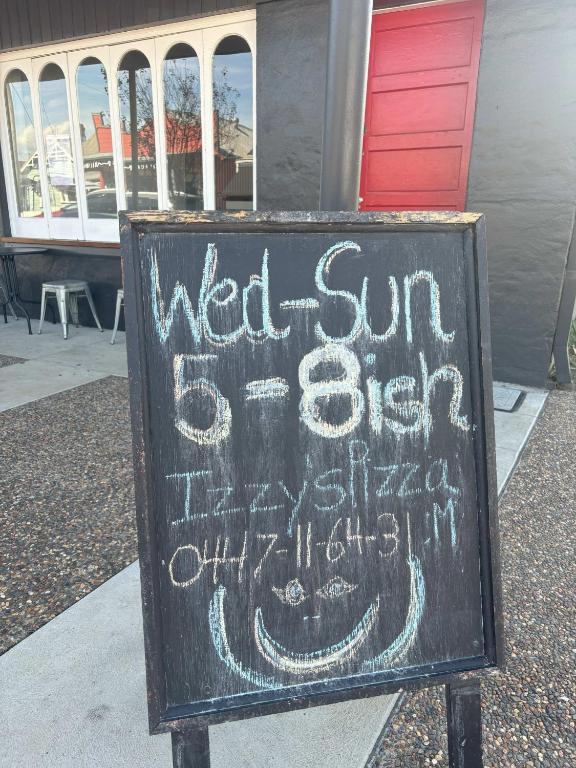 Wed-Sun
5-8ish
Izzy's Pizza
:M
0447-11-64-31